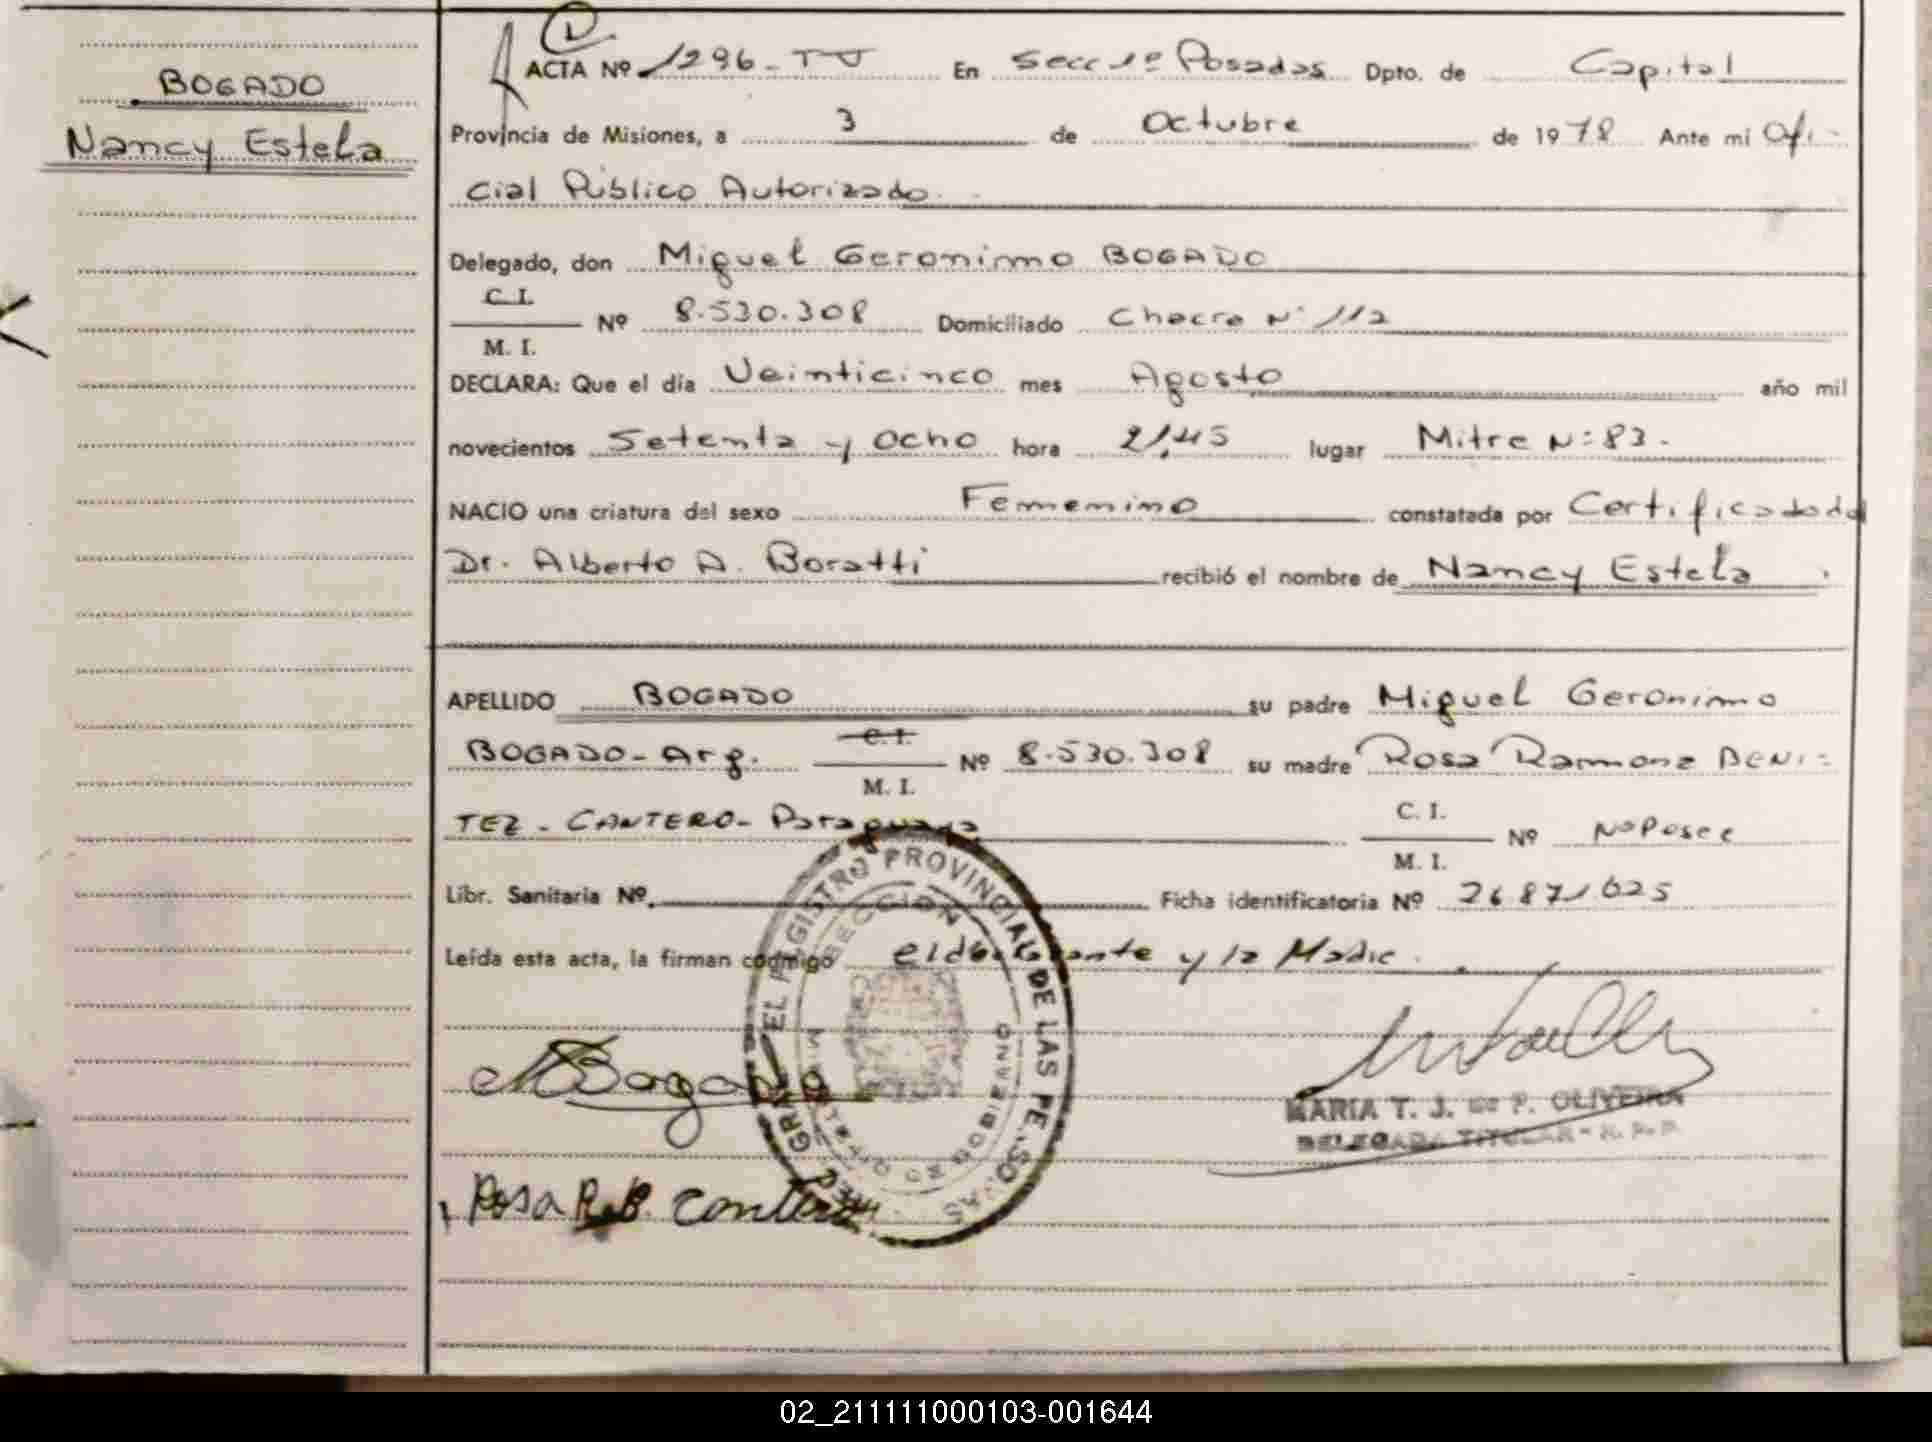 BOGADO
Nancy Estela
ACTA Nº 1296-TU En Secc 1º Posadas Dpto. de Capital
Provincia de Misiones, a 3 de Octubre de 1978 Ante mi Ofi-
cial Público Autorizado.
Delegado, don Miguel Geronimo BOGADO
C. I.
Nº 8.530.308 Domiciliado Chacra Nº 112
M. I.
DECLARA: Que el día Veinticinco mes Agosto año mil
novecientos Setenta y Ocho hora 21,45 lugar Mitre Nº 83.
NACIO una criatura del sexo Femenino constatada por Certificado del
Dr. Alberto A. Boratti recibió el nombre de Nancy Estela
APELLIDO BOGADO su padre Miguel Geronimo
BOGADO-Arg. C. I. Nº 8.530.308 su madre Rosa Ramona BENI-
M. I.
TEZ-CANTERO-Paraguaya C. I. Nº No Posee
M. I.
Libr. Sanitaria Nº. Ficha identificatoria Nº 26871025
Leída esta acta, la firman conmigo el declarante y la Madre.
REGISTRO PROVINCIAL DE LAS PERSONAS
DIRECCION
MBogado
MARIA T. J. DE P. OLIVEIRA
DELEGADA TITULAR - R. P. P.
Rosa R. B. Cantero
02_211111000103-001644